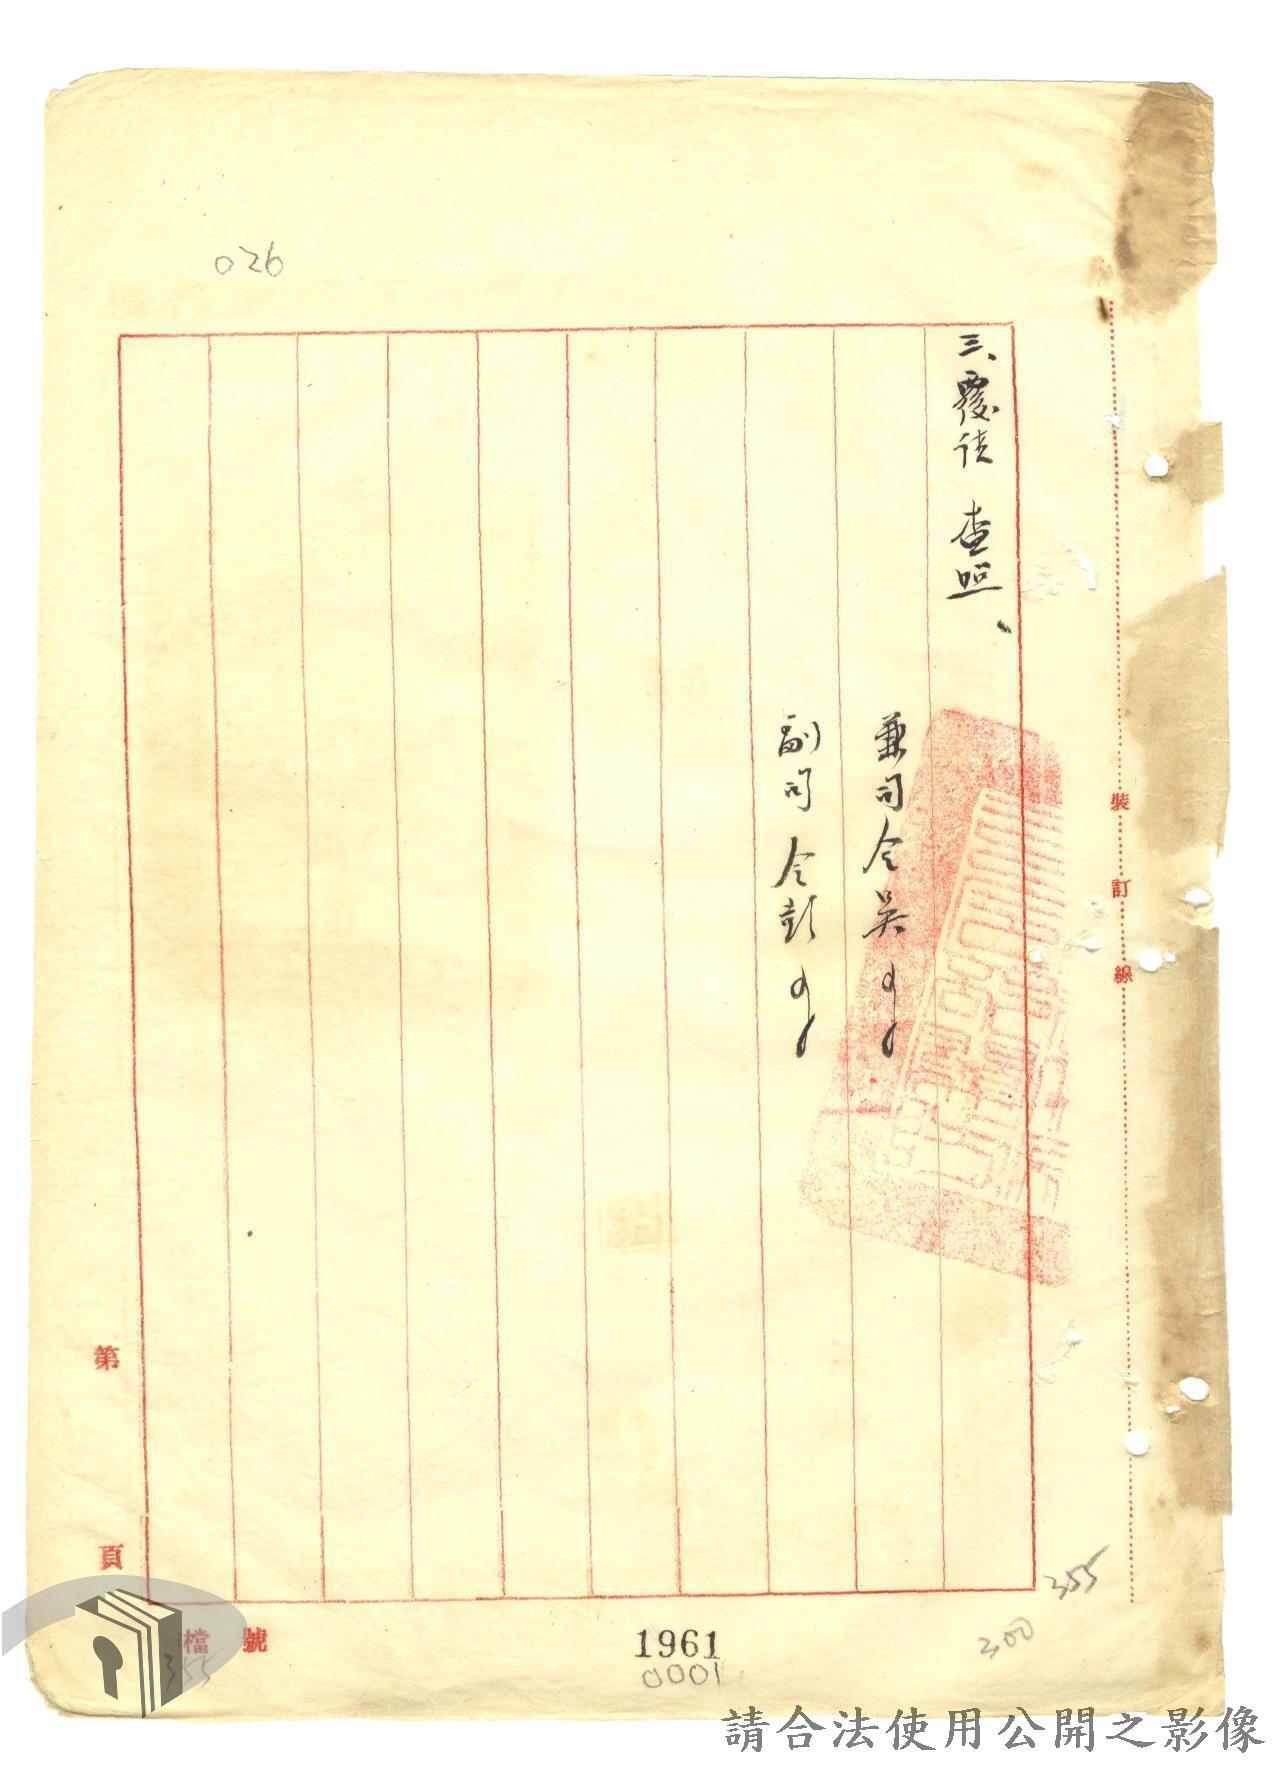 026
三、覆請 查照、
兼司令吳
副司令彭
裝訂線
第 頁
檔 號
355
355
300
1961
0001
請合法使用公開之影像